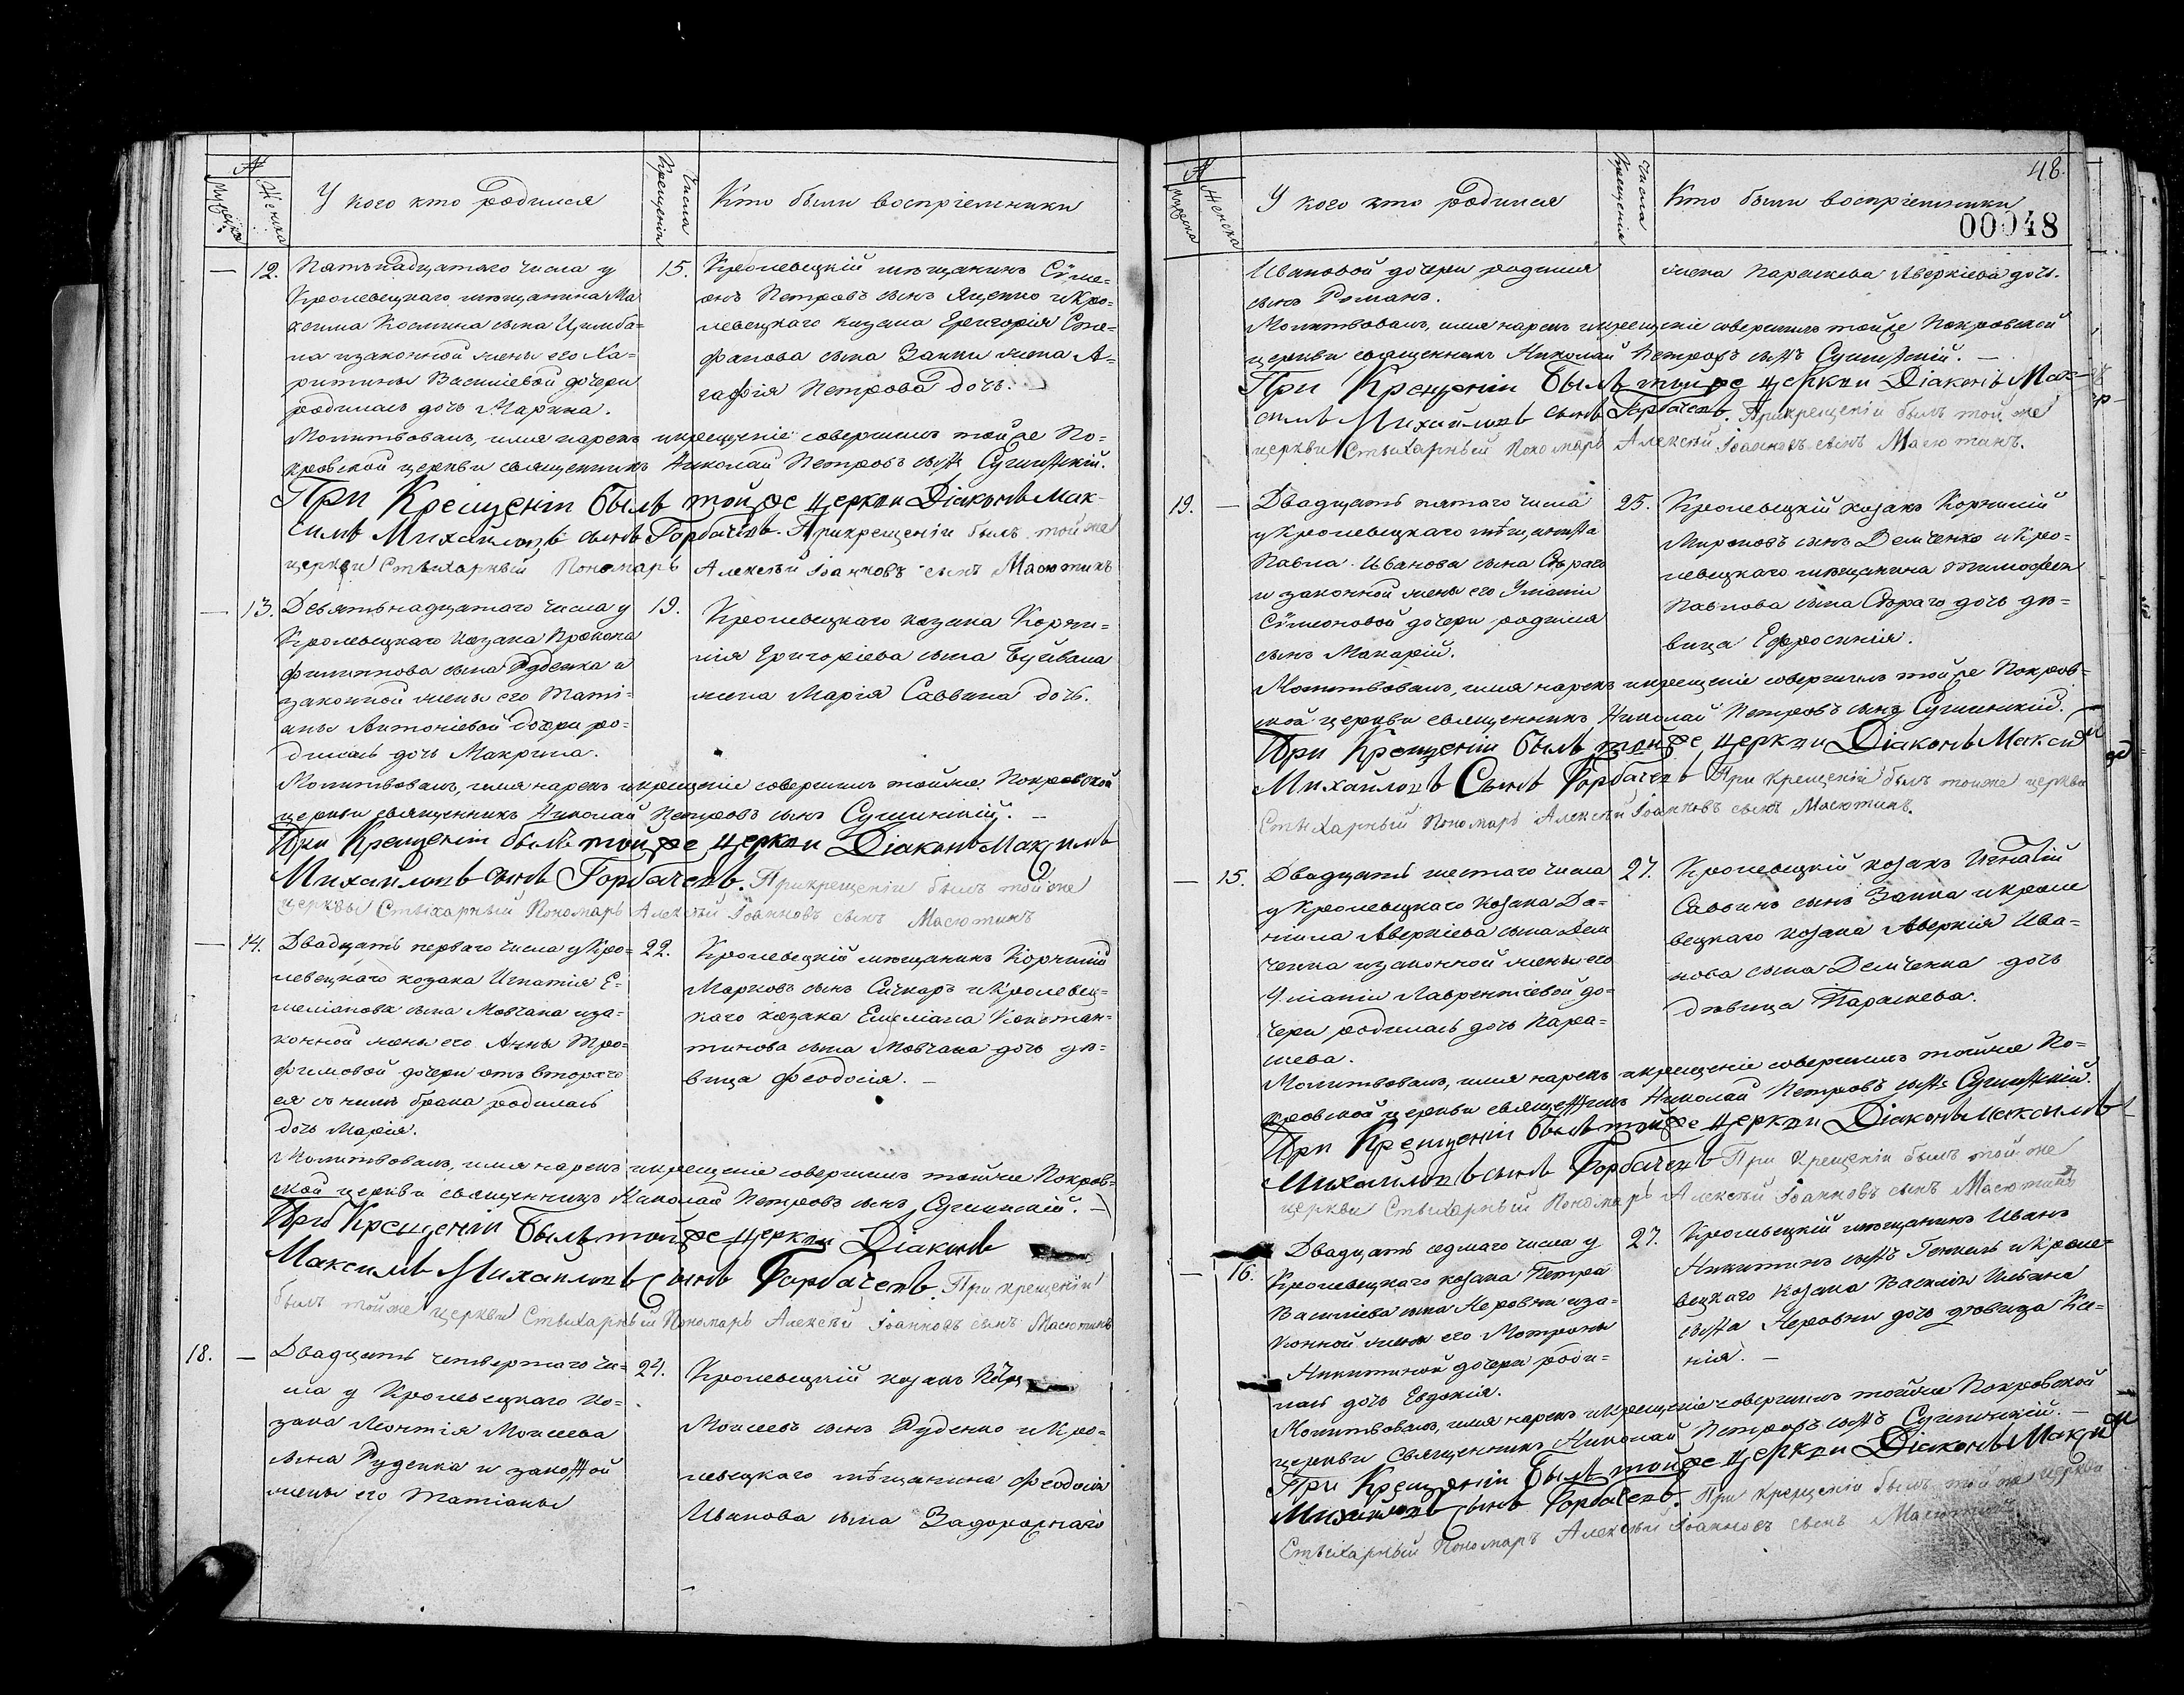 №
Мужеска
Женска
У кого кто родился
Числа Крещенія
Кто были воспріемники
12.
Пятьнадцатаго числа у
Кролевецкаго мѣщанина Ма
ксима Космина сына Цимба-
ла и законной жены его Ха-
ритины Василіевой дочери
родилась дочь Марина.
15.
Кролевецкій мѣщанинъ Сѷме-
онъ Петровъ сынъ Яценко и Кро-
левецкаго казака Григорія Сте-
фанова сына Заики жена А-
гафія Петрова дочь.
Молитвовалъ, имя нарекъ и крещеніе совершилъ той же По-
кровской церкви священникъ Николай Петровъ сынъ Сушинскій.
При Крещеніи былъ той же церкви Діаконъ Мак-
симъ Михайловъ сынъ Горбачевъ. При крещеніи былъ той же
церкви Стыхарный Пономарь Алексѣй Іоанновъ сынъ Масютинъ
13.
Девятьнадцатаго числа у
Кролевецкаго козака Прокопа
Филиппова сына Руденка и
законной жены его Таті-
аны Антоніевой дочери ро-
дилась дочь Макрина.
19.
Кролевецкаго козака Корни-
лія Григоріева сына Буйвала
жена Марія Саввина дочь.
Молитвовалъ, имя нарекъ и крещеніе совершилъ тойже Покровской
церкви священникъ Николай Петровъ сынъ Сушинскій.
При Крещеніи былъ той же церкви Діаконъ Максимъ
Михайловъ сынъ Горбачевъ. При крещеніи былъ той же
церквы Стыхарный Пономарь Алексѣй Іоанновъ сынъ Масютинъ
14.
Двадцать перваго числа у Кро-
левецкаго козака Игнатія Е-
меліанова сына Мовчана и за-
конной жены его Анны Тро-
фимовой дочери отъ втораго
ея съ нимъ брака родилась
дочь Марія.
22.
Кролевецкій мѣщанинъ Корнилій
Марковъ сынъ Сичкаръ и Кролевец-
каго козака Емеліана Констан-
тинова сына Мовчана дочь дѣ-
вица Феодосія.
Молитвовалъ, имя нарекъ и крещеніе совершилъ тойже Покров-
ской церкви священникъ Николай Петровъ сынъ Сушинскій.
При Крещеніи былъ той же церкви Діаконъ
Максимъ Михайловъ сынъ Горбачевъ. При крещеніи
былъ той же церкви Стыхарный Пономарь Алексѣй Іоанновъ сынъ Масютинъ
18.
Двадцать четвертаго чи-
сла у Кролевецкаго ко-
зака Леонтія Моисеева
сына Руденка и законной
жены его Татіаны
24.
Кролевецкій козакъ
Моисеевъ сынъ Руденко и Кро-
левецкаго мѣщанина Феодосія
Иванова сына Задорожнаго
48.
00048
№
Мужеска
Женска
У кого кто родился
Числа Крещенія
Кто были воспріемники
Ивановой дочери родился
сынъ Романъ.
жена Параскева Аверкіева дочь.
Молитвовалъ, имя нарекъ и крещеніе совершилъ той же Покровской
церкви священникъ Николай Петровъ сынъ Сушинскій.
При Крещеніи былъ той же церкви Діаконъ Мак-
симъ Михайловъ сынъ Горбачевъ. При крещеніи былъ той же
церкви Стыхарный Пономарь Алексѣй Іоанновъ сынъ Масютинъ.
19.
Двадцать пятаго числа
у Кролевецкаго мѣщанина
Павла Иванова сына Сѣраго
и законной жены его Уліаніи
Сѷмеоновой дочери родился
сынъ Макарій.
25.
Кролевецкій козакъ Корнилій
Мироновъ сынъ Демченко и Кро-
левецкаго мѣщанина Тимофея
Павлова сына Сѣраго дочь дѣ-
вица Ефросинія.
Молитвовалъ, имя нарекъ и крещеніе совершилъ той же Покров-
ской церкви священникъ Николай Петровъ сынъ Сушинскій.
При Крещеніи былъ той же церкви Діаконъ Максим
Михайловъ Сынъ Горбачевъ При крещеніи былъ тойже церкви
Стыхарный Пономарь Алексѣй Іоанновъ сынъ Масютинъ.
15.
Двадцать шестаго числа
у Кролевецкаго козака Да-
ніила Аверкіева сына Дем
ченка и законной жены его
Уліаніи Лаврентіевой до-
чери родилась дочь Пара-
скева.
27.
Кролевецкій козакъ Игнатій
Саввинъ сынъ Заика и Кроле
вецкаго козака Аверкія Ива-
нова сына Демченка дочь
дѣвица Параскева.
Молитвовалъ, имя нарекъ и крещеніе совершилъ тойже По-
кровской церкви священникъ Николай Петровъ сынъ Сушинскій.
При Крещеніи былъ той же церкви Діаконъ Максимъ
Михайловъ сынъ Горбачевъ При Крещеніи былъ той же
церкви Стыхарный Пономарь Алексѣй Іоанновъ сынъ Масютинъ
16.
Двадцать седмаго числа у
Кролевецкаго козака Петра
Василіева сына Неровни и за-
конной жены его Мотроны
Никитиной дочери роди-
лась дочь Евдокія.
27.
Кролевецкій мѣщанинъ Иванъ
Никитинъ сынъ и Кроле-
вецкаго козака Василія Ильина
сына Неровни дочь дѣвица Ксе-
нія.
Молитвовалъ, имя нарекъ и крещеніе совершилъ тойже Покровской
церкви Священникъ Николай Петровъ сынъ Сушинскій.
При Крещеніи былъ той же церкви Діаконъ Максим
Михайловъ сынъ Горбачевъ. При крещеніи былъ той же церкви
Стыхарный Пономарь Алексѣй Іоанновъ сынъ Масютинъ